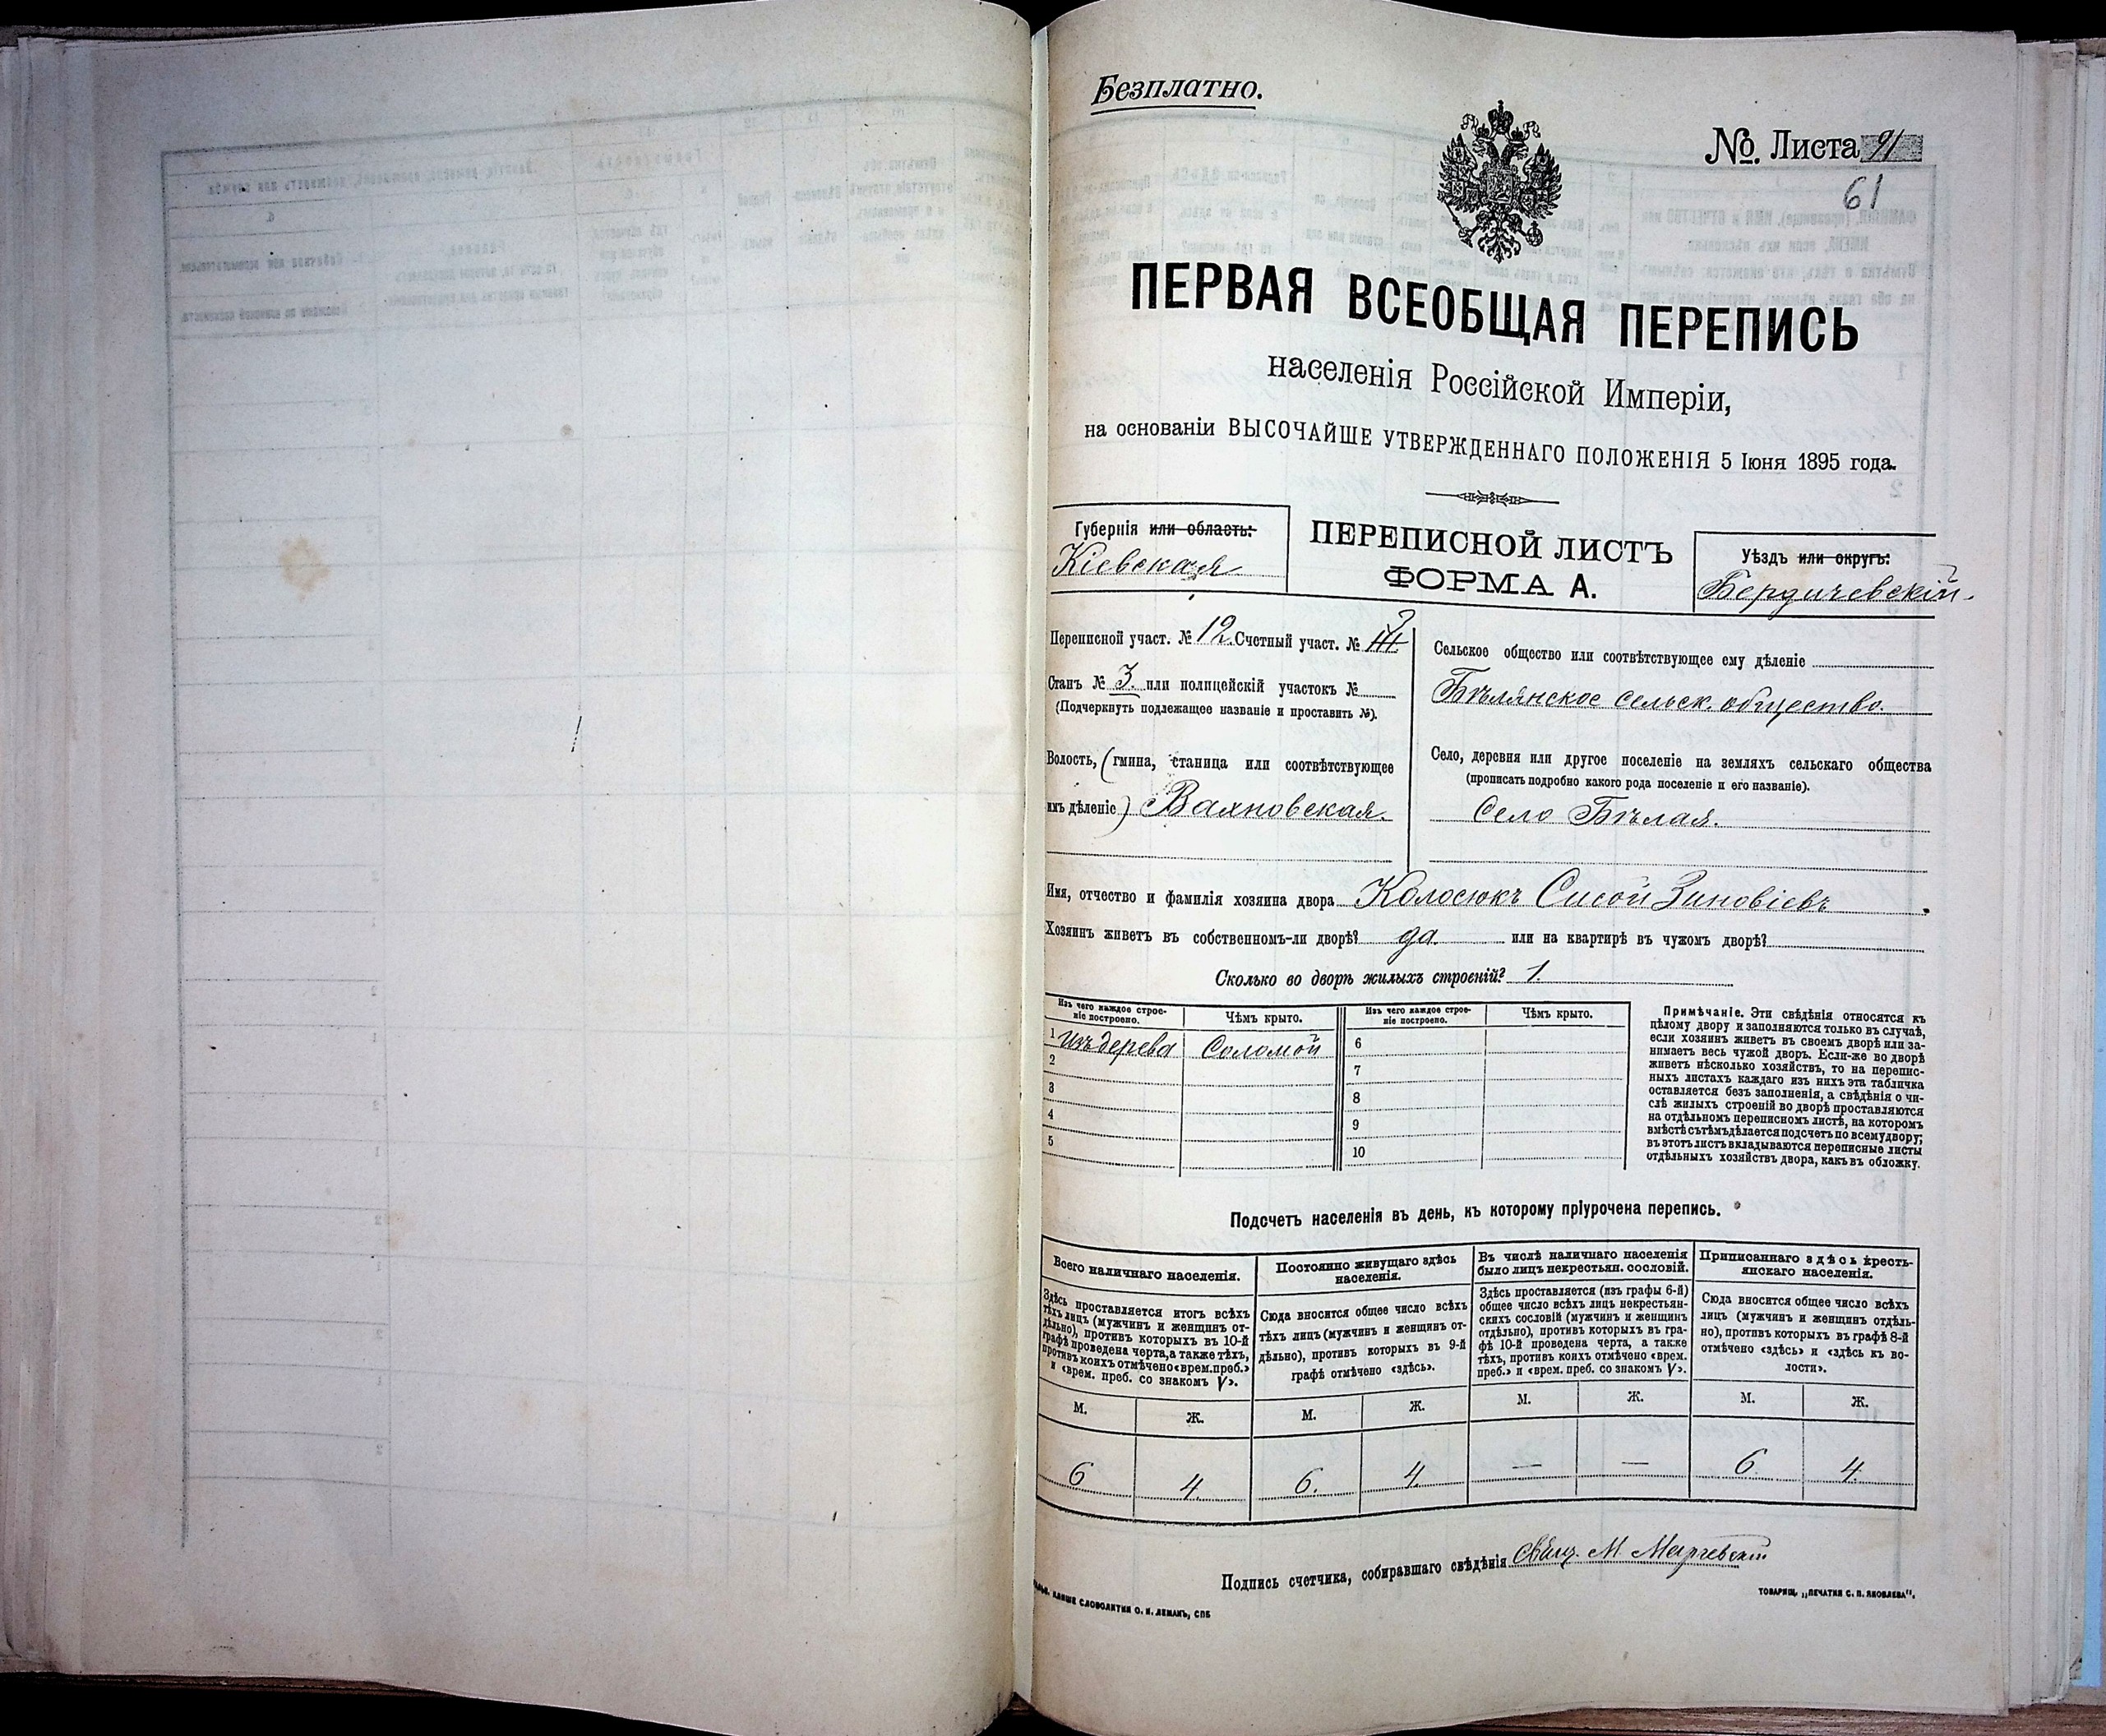 Безплатно.
№. Листа 91
61
ПЕРВАЯ ВСЕОБЩАЯ ПЕРЕПИСЬ
населенія Россійской Имперіи,
на основаніи ВЫСОЧАЙШЕ УТВЕРЖДЕННАГО ПОЛОЖЕНІЯ 5 Іюня 1895 года.
Губернія или область:
Кіевская
ПЕРЕПИСНОЙ ЛИСТЪ
ФОРМА А.
Уѣздъ или округъ:
Бердичевскій.
Переписной участ. № 12. Счетный участ. №
Станъ № 3. или полицейскій участокъ №
(Подчеркнуть подлежащее названіе и проставить №).
Волость, (гмина, станица или соотвѣтствующее
имъ дѣленіе) Вахновская.
Сельское общество или соотвѣтствующее ему дѣленіе
Бѣлянское сельск. общество.
Село, деревня или другое поселеніе на земляхъ сельскаго общества
(прописать подробно какого рода поселеніе и его названіе).
Село Бѣлая.
Имя, отчество и фамилія хозяина двора Колосюкъ Сисой Зиновіевъ
Хозяинъ живетъ въ собственномъ-ли дворѣ? да. или на квартирѣ въ чужомъ дворѣ?
Сколько во дворѣ жилыхъ строеній? 1.
Изъ чего каждое строе-
ніе построено.
Чѣмъ крыто.
Изъ чего каждое строе-
ніе построено.
Чѣмъ крыто.
1 Изъ дерева Соломой 6
2 7
3 8
4 9
5 10
Примѣчаніе. Эти свѣдѣнія относятся къ
цѣлому двору и заполняются только въ случаѣ,
если хозяинъ живетъ въ своемъ дворѣ или за-
нимаетъ весь чужой дворъ. Если-же во дворѣ
живетъ нѣсколько хозяйствъ, то на перепис-
ныхъ листахъ каждаго изъ нихъ эта табличка
оставляется безъ заполненія, а свѣдѣнія о чи-
слѣ жилыхъ строеній во дворѣ проставляются
на отдѣльномъ переписномъ листѣ, на которомъ
вмѣстѣ съ тѣмъ дѣлается подсчетъ по всему двору;
въ этотъ листъ вкладываются переписные листы
отдѣльныхъ хозяйствъ двора, какъ въ обложку.
Подсчетъ населенія въ день, къ которому пріурочена перепись.
Всего наличнаго населенія.
Здѣсь проставляется итогъ всѣхъ
тѣхъ лицъ (мужчинъ и женщинъ от-
дѣльно), противъ которыхъ въ 10-й
графѣ проведена черта, а также тѣхъ,
противъ коихъ отмѣчено «врем. преб.»
и «врем. преб. со знакомъ V».
Постоянно живущаго здѣсь
населенія.
Сюда вносится общее число всѣхъ
тѣхъ лицъ (мужчинъ и женщинъ от-
дѣльно), противъ которыхъ въ 9-й
графѣ отмѣчено «здѣсь».
Въ числѣ наличнаго населенія
было лицъ некрестьян. сословій.
Здѣсь проставляется (изъ графы 6-й)
общее число всѣхъ лицъ некрестьян-
скихъ сословій (мужчинъ и женщинъ
отдѣльно), противъ которыхъ въ гра-
фѣ 10-й проведена черта, а также
тѣхъ, противъ коихъ отмѣчено «врем.
преб.» и «врем. преб. со знакомъ V».
Приписаннаго здѣсь кресть-
янскаго населенія.
Сюда вносится общее число всѣхъ
лицъ (мужчинъ и женщинъ отдѣль-
но), противъ которыхъ въ графѣ 8-й
отмѣчено «здѣсь» и «здѣсь къ во-
лости».
М. Ж. М. Ж. М. Ж. М. Ж.
6 4. 6. 4. — — 6. 4.
Подпись счетчика, собиравшаго свѣдѣнія М.
КЛИШЕ СЛОВОЛИТНИ О. И. ЛЕМАНЪ, СПБ
ТОВАРИЩ. „ПЕЧАТНЯ С. П. ЯКОВЛЕВА“.